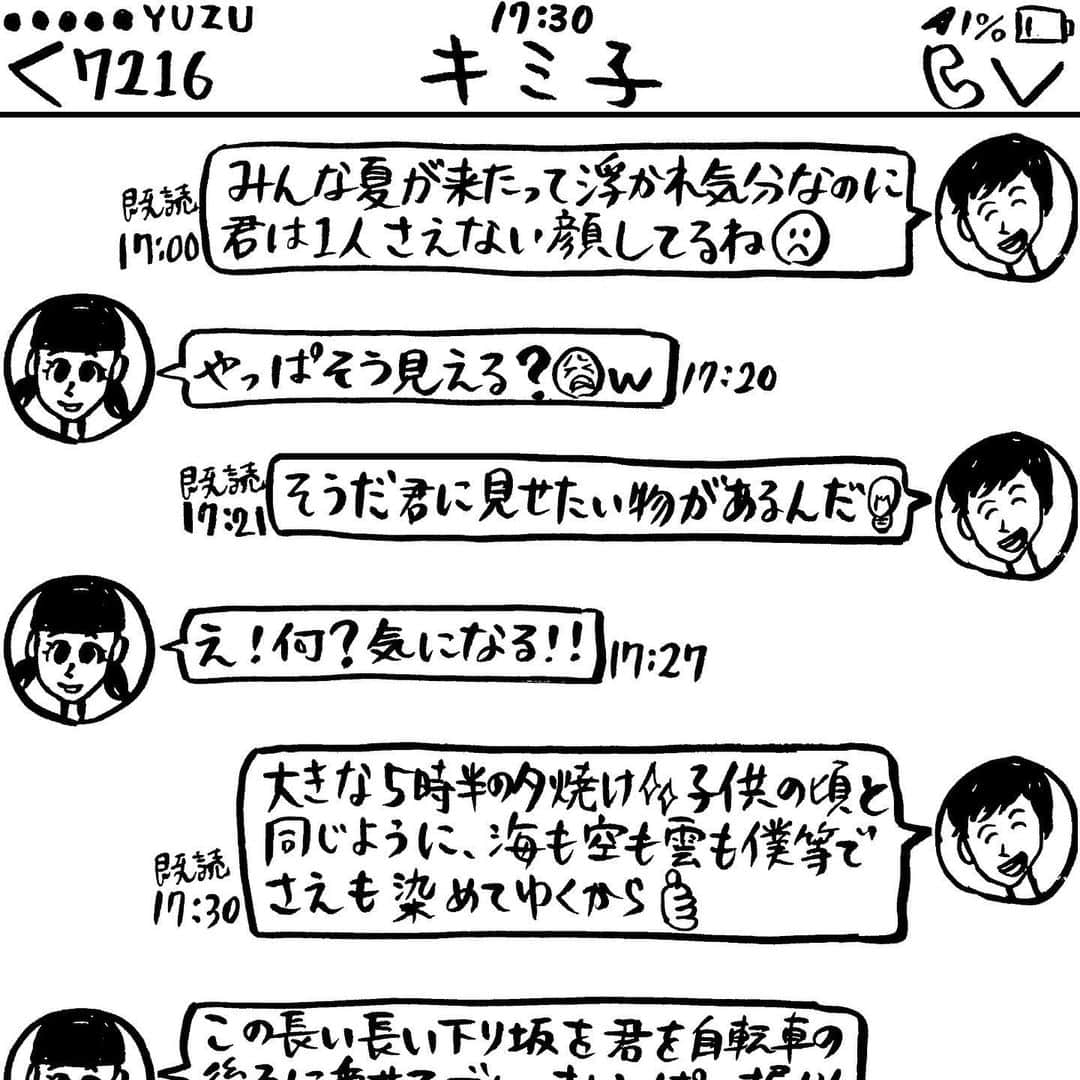 ●●●●● YUZU 17:30 41%
<7216 キミ子
みんな夏が来たって浮かれ気分なのに
君は1人さえない顔してるね☹
既読
17:00
やっぱそう見える?😫w
17:20
そうだ君に見せたい物があるんだ💡
既読
17:21
え!何?気になる!!
17:27
大きな5時半の夕焼け✨子供の頃と
同じように、海も空も雲も僕等で
さえも染めてゆくから👍
既読
17:30
この長い長い下り坂を君を自転車の